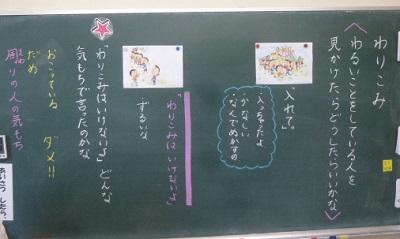 わりこみ
〈わるいことをしている人を
見かけたらどうしたらいいかな〉
"入れて。
入っちゃだよ
かなしい
なんでぬかすの
"わりこみは いけないよ"
ずるいな
"わりこみはいけないよ" どんな
気もちで言ったのかな
おこっている
だめ ダメ!!
周りの人の気もち
あいさつしたら、